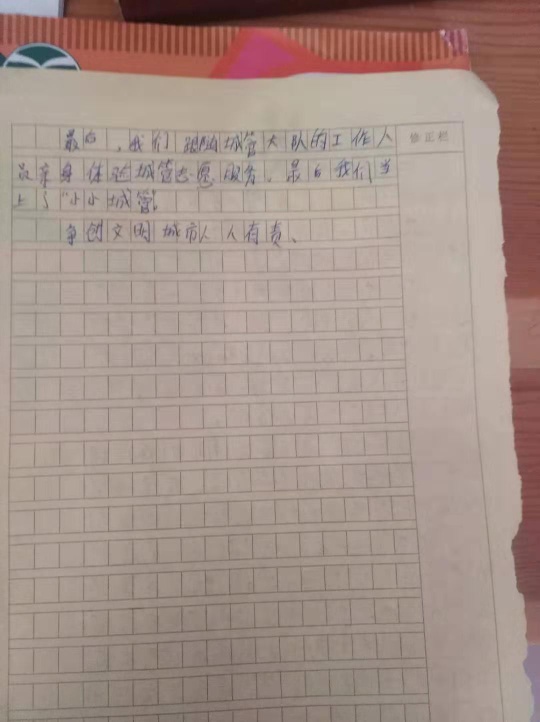 最后，我们跟随城管大队的工作人 修正栏
员亲身体验城管志愿服务，最后我们当
上了“小小城管”。
争创文明城市人人有责、